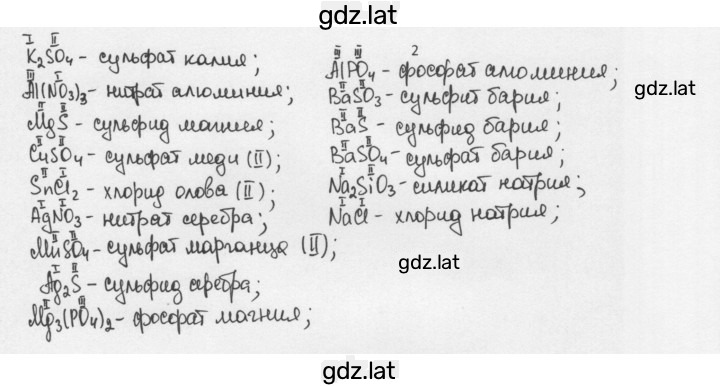 gdz.lat
K₂SO₄ - сульфат калия;
Al(NO₃)₃ - нитрат алюминия;
MgS - сульфид магния;
CuSO₄ - сульфат меди (II);
SnCl₂ - хлорид олова (II);
AgNO₃ - нитрат серебра;
MnSO₄ - сульфат марганца (II);
Ag₂S - сульфид серебра;
Mg₃(PO₄)₂ - фосфат магния;
AlPO₄ - фосфат алюминия;
BaSO₃ - сульфит бария;
BaS - сульфид бария;
BaSO₄ - сульфат бария;
Na₂SiO₃ - силикат натрия;
NaCl - хлорид натрия;
gdz.lat
gdz.lat
gdz.lat